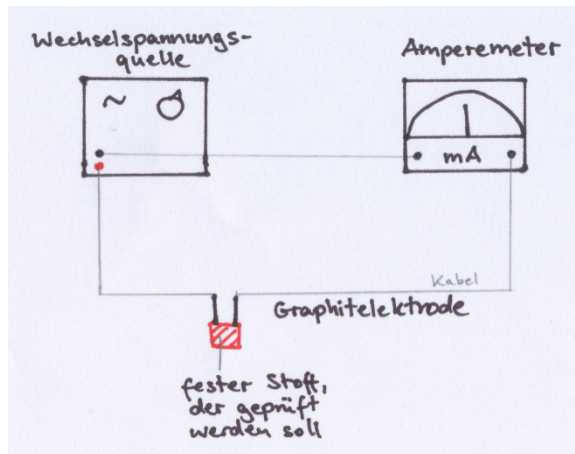 Wechselspannungs-
quelle
Amperemeter
~
mA
Kabel
Graphitelektrode
fester Stoff,
der geprüft
werden soll